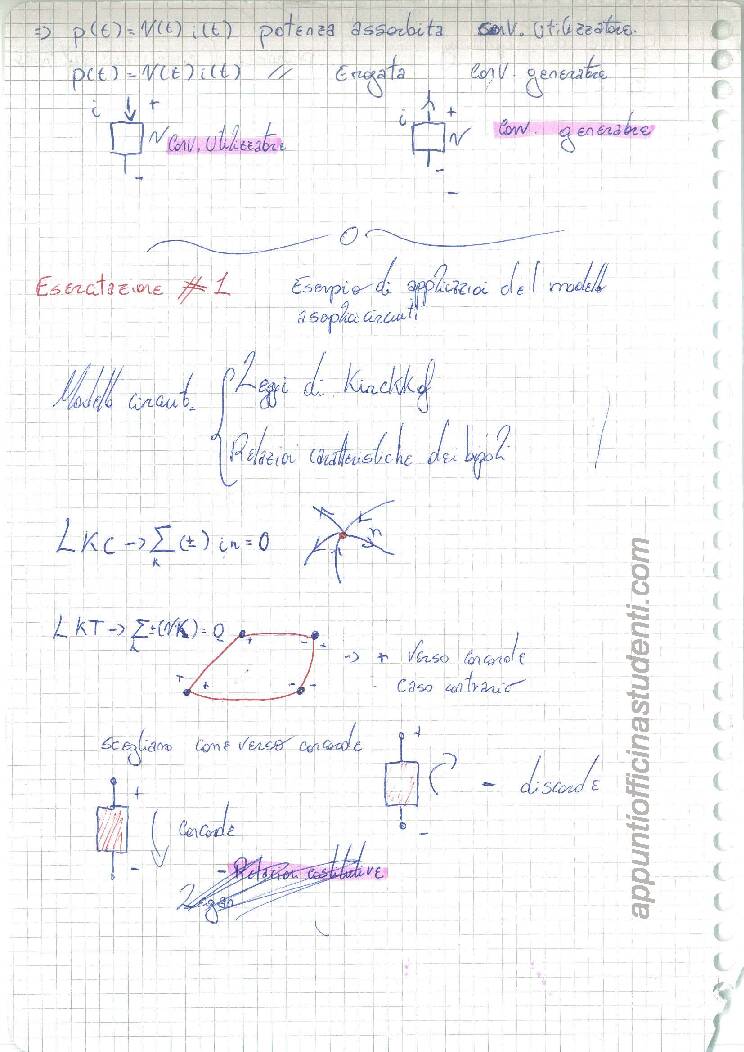 => p(t) = V(t) i(t) potenza assorbita conv. Utilizzatore.
p(t) = V(t) i(t) // Erogata conv. generatore
i + V Conv. Utilizzatore -
i + V Conv. generatore -
Esercitazione # 1 Esempio di applicazioi del modello
a soplici circuiti
Modello circuit. { Leggi di Kirckkof
Relazioi caratteristiche dei bipoli
LKC -> Σ (±) in = 0
K
LKT -> Σ ±(VK) = 0
-> + Verso concorde
- caso contrario
scegliamo come verso concorde
+ concorde -
+ - discorde -
- Relazioni costitutive
appuntiofficinastudenti.com